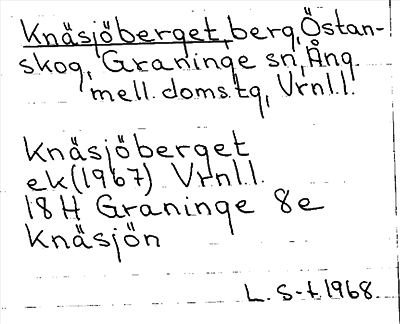 Knäsjöberget, berg, Östan-
skog, Graninge sn, Ång.
mell. doms.tg, Vrnl.l.
Knäsjöberget
ek(1967) Vrnl.l.
18H Graninge 8e
Knäsjön
L. S-t 1968.